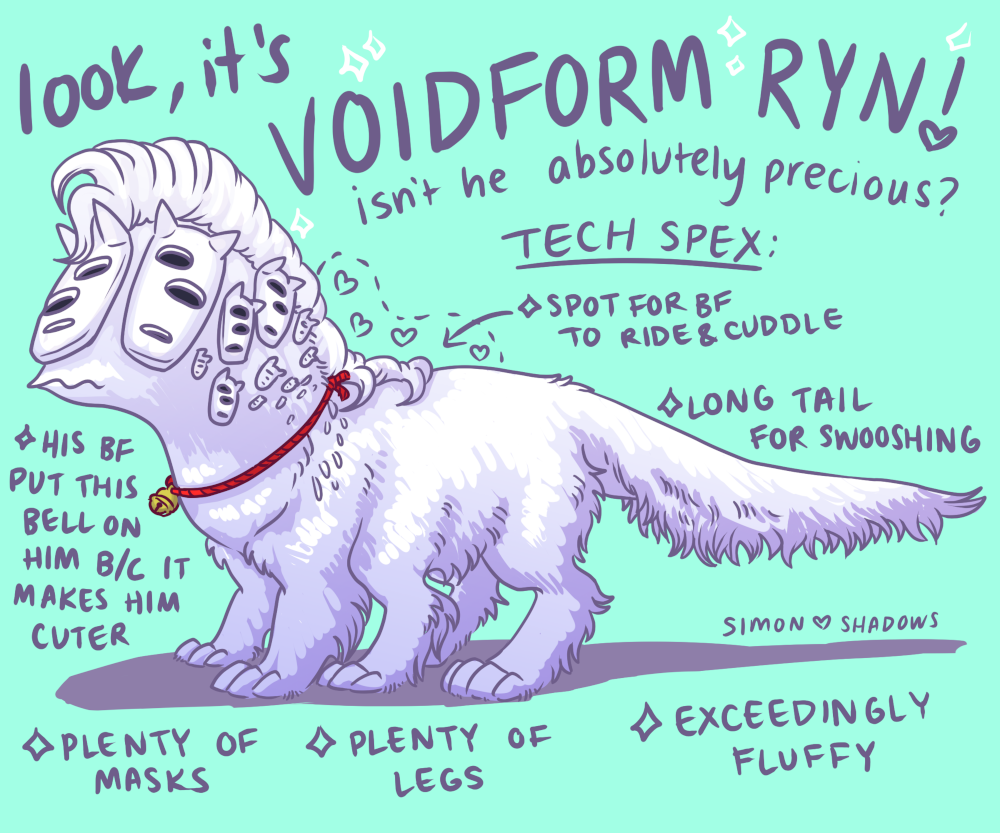 look, it's
VOIDFORM RYN!
isn't he absolutely precious?
TECH SPEX:
SPOT FOR BF
TO RIDE & CUDDLE
LONG TAIL
FOR SWOOSHING
HIS BF
PUT THIS
BELL ON
HIM B/C IT
MAKES HIM
CUTER
SIMON ♡ SHADOWS
PLENTY OF
MASKS
PLENTY OF
LEGS
EXCEEDINGLY
FLUFFY